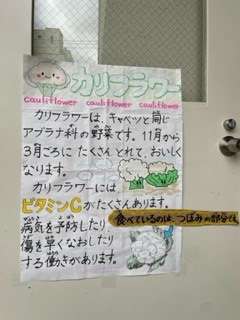 カリフラワー
cauliflower cauliflower cauliflower
カリフラワーは、キャベツと同じ
アブラナ科の野菜です。11月から
3月ごろに たくさんとれて、おいしく
なります。
カリフラワーには、
ビタミンCがたくさんあります。
病気を予防したり
傷を早くなおしたり
する働きがあります。
食べているのは、つぼみの部分